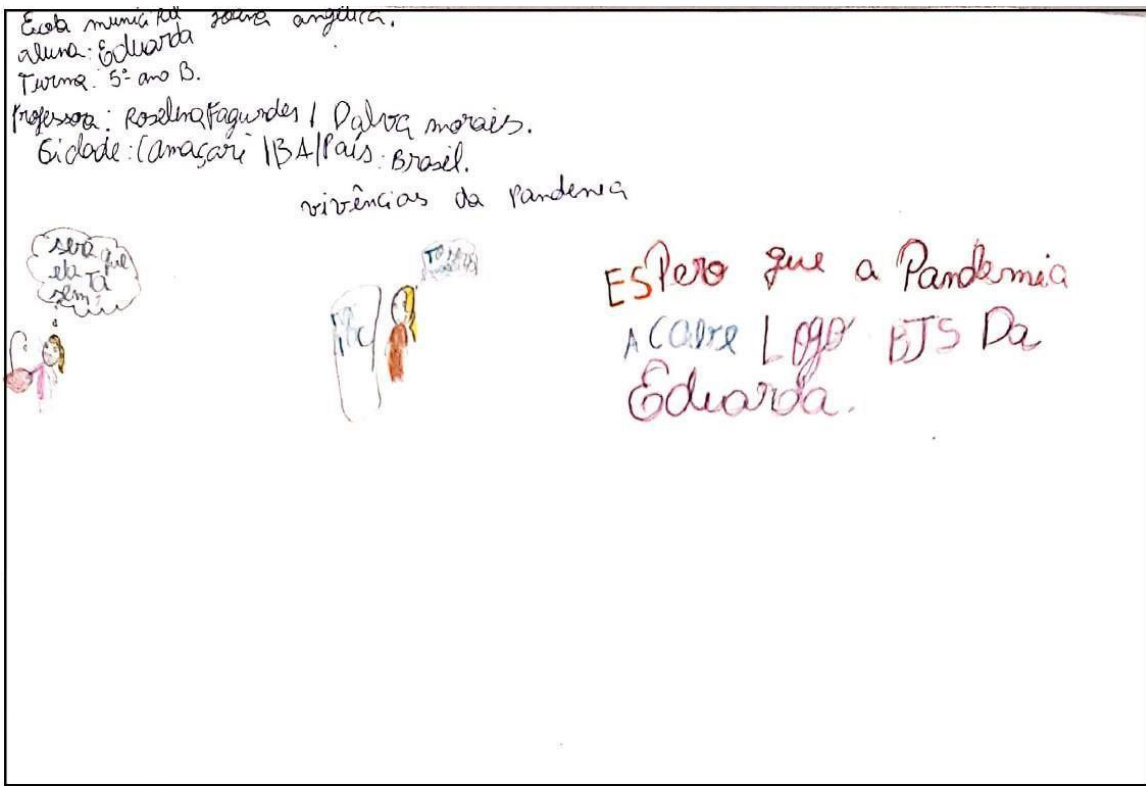 Escola municipal Joana angélica.
aluna: Eduarda
Turma: 5º ano B.
Professora: Roselina Fagundes / Dalva morais.
Cidade: Camaçari / BA / País: Brasil.
vivências da Pandemia
será que
ela Tá
sem?
ESPero que a Pandemia
ACABe LOgO BJS Da
Eduarda.